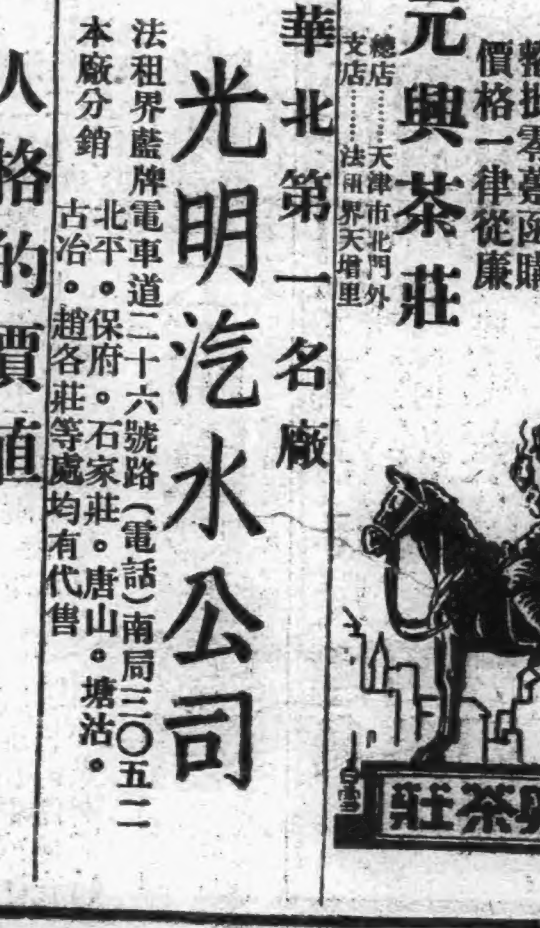 價格一律從廉
元興茶莊
總店………天津市北門外
支店………法租界天增里
莊茶興
華北第一名廠
光明汽水公司
法租界藍牌電車道二十六號路（電話）南局三〇五一二
本廠分銷
北平。保府。石家莊。唐山。塘沽。
古冶。趙各莊等處均有代售
人格的價值